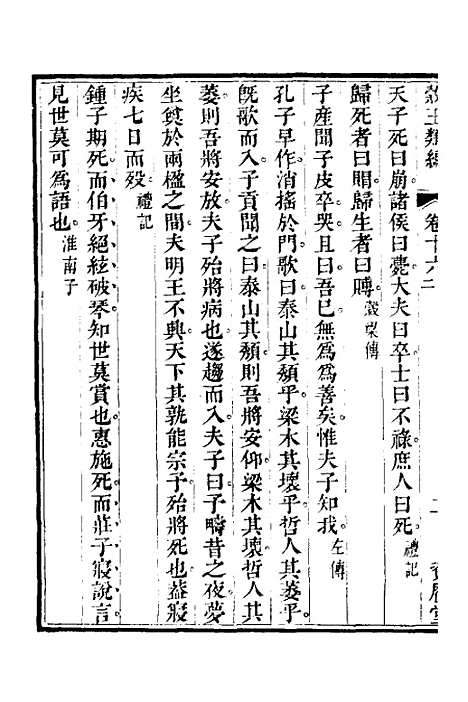 類編 卷十六二
天子死曰崩諸侯曰薨大夫曰卒士曰不祿庶人曰死。禮記
歸死者曰賵歸生者曰賻。穀梁傳
子產聞子皮卒哭且曰吾已無爲爲善矣惟夫子知我。左傳
孔子早作消搖於門。歌曰泰山其頹乎梁木其壞乎哲人其萎乎。
旣歌而入子貢聞之曰泰山其頹則吾將安仰梁木其壞哲人其
萎。則吾將安放夫子殆將病也。遂趨而入夫子曰予疇昔之夜夢
坐奠於兩楹之間夫明王不興天下其孰能宗予殆將死也葢寢
疾七日而殁。禮記
鍾子期死而伯牙絕絃破琴知世莫賞也。惠施死而莊子寢說言。
見世莫可爲語也。淮南子